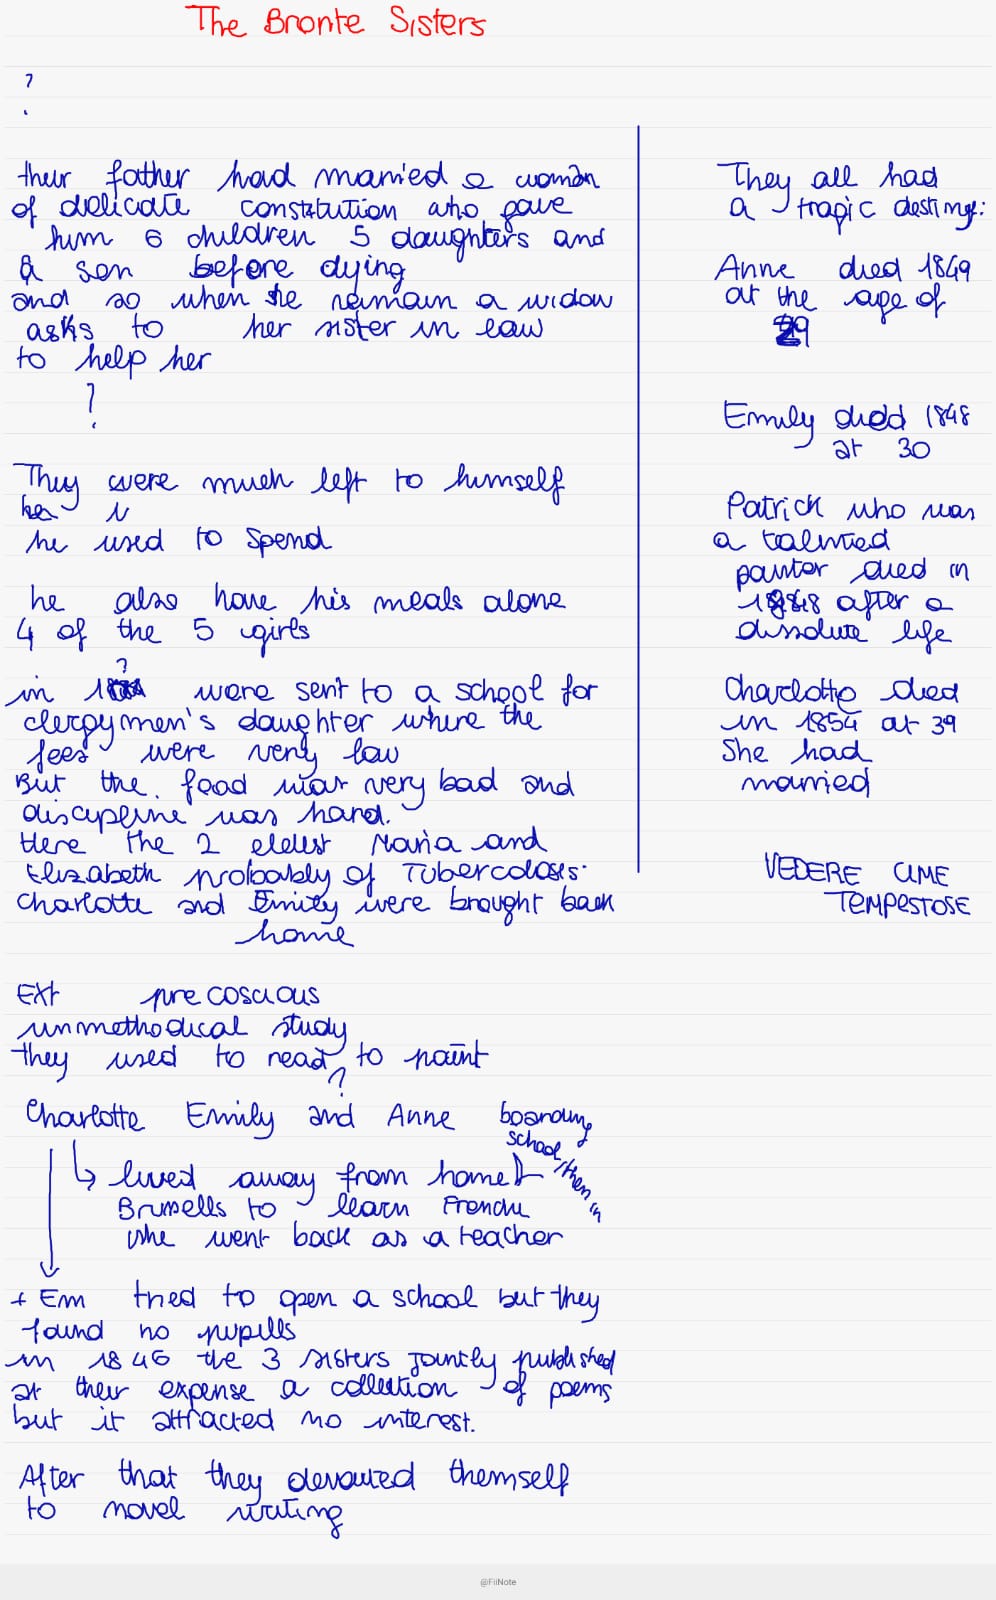 The Bronte Sisters
?
their father had married a woman
of delicate constitution who gave
him 6 children 5 daughters and
a son before dying
and so when he remain a widow
asks to her sister in law
to help her
?
They were much left to himself
he used to spend
he also have his meals alone
4 of the 5 girls
?
in were sent to a school for
clergymen's daughter where the
fees were very low
But the food was very bad and
discipline was hard.
Here the 2 eldest Maria and
Elizabeth probably of Tubercolosis.
Charlotte and Emily were brought back
home
EXt precoscious
unmethodical study
they used to read, to paint
?
Charlotte Emily and Anne boarding
school, then in
lived away from home
Bruxells to learn French
she went back as a teacher
+ Em tried to open a school but they
found no pupills
in 1846 the 3 sisters jointly published
at their expense a collection of poems
but it attracted no interest.
After that they devouted themself
to novel writing
They all had
a tragic destiny:
Anne died 1849
at the age of
29
Emily died 1848
at 30
Patrick who was
a talented
painter died in
1848 after a
dissolute life
Charlotte died
in 1854 at 39
She had
married
VEDERE CIME
TEMPESTOSE
@FiiNote